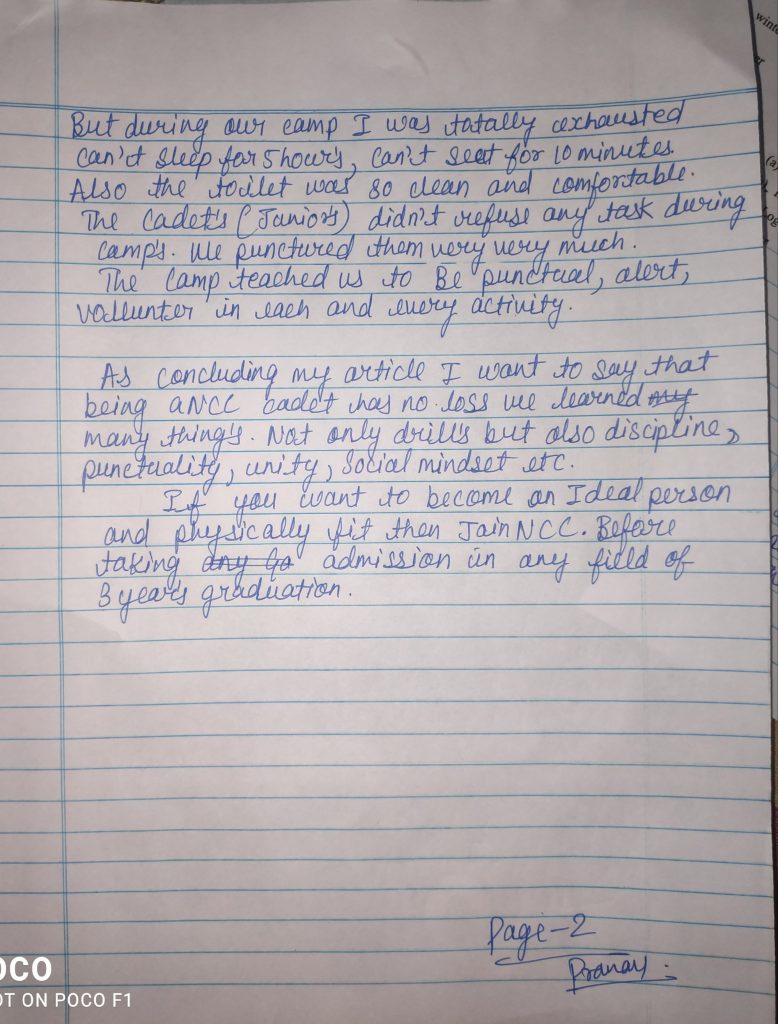 But during our camp I was totally exhausted
can't sleep for 5 hour's, can't seat for 10 minutes.
Also the toilet was so clean and comfortable.
The Cadet's (Junior's) didn't refuse any task during
camp's. We punctured them very very much.
The Camp teached us to Be punctual, alert,
vollunter in each and every activity.
As concluding my article I want to say that
being a NCC cadet has no loss we learned my
many thing's. Not only drill's but also discipline,
punctuality, unity, Social mindset etc.
If you want to become an Ideal person
and physically fit then Join NCC. Before
taking any admission in any field of
3 years graduation.
Page-2
Pranay
OCO
OT ON POCO F1